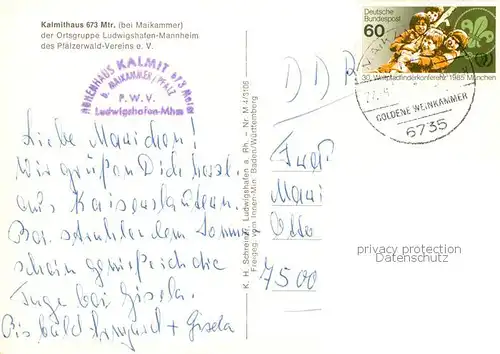 Kalmithaus 673 Mtr. (bei Maikammer)
der Ortsgruppe Ludwigshafen-Mannheim
des Pfälzerwald-Vereins e. V.
HÖHENHAUS KALMIT 673 Meter
b. MAIKAMMER/PFALZ
P. W. V.
Ludwigshafen-Mhm
Liebe Mariechen!
Wir grüßen Dich herzl.
aus Kaiserslautern.
Bei strahlendem Sonnen
schein genieße ich die
Tage bei Gisela.
Bis bald Irmgard + Gisela
K. H. Schreiner, Ludwigshafen a. Rh. – Nr. M 4/3106
Freigeg. vom Innen-Min. Baden/Württemberg
Deutsche
Bundespost
60
30. Weltpfadfinderkonferenz 1985 München
GOLDENE WEINKAMMER
6735
DDR
Frau
Otto
7500
privacy protection
Datenschutz